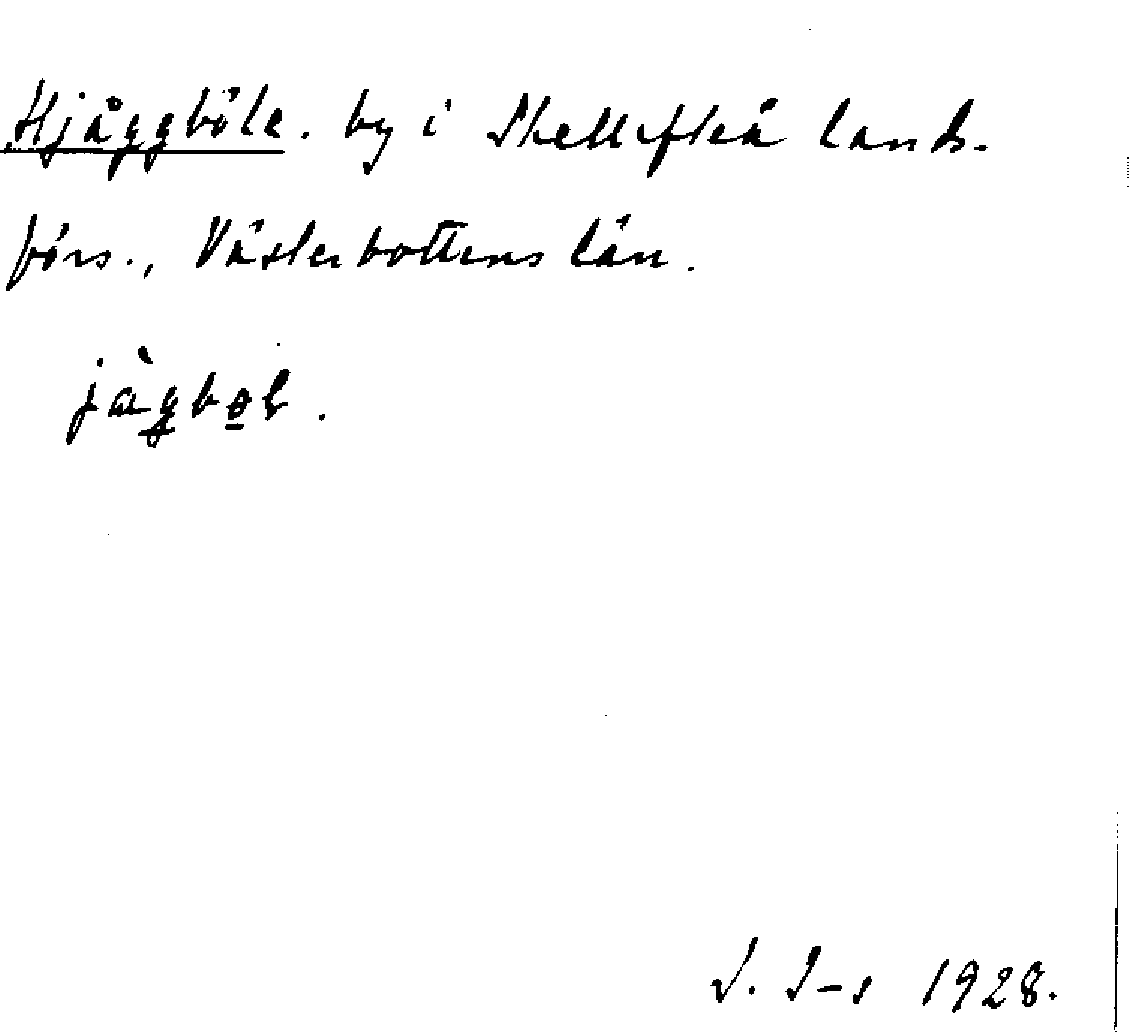 Hjåggböle. by i Skellefteå lands-
förs., Västerbottens län.
jàgbøl.
J. I-s 1928.